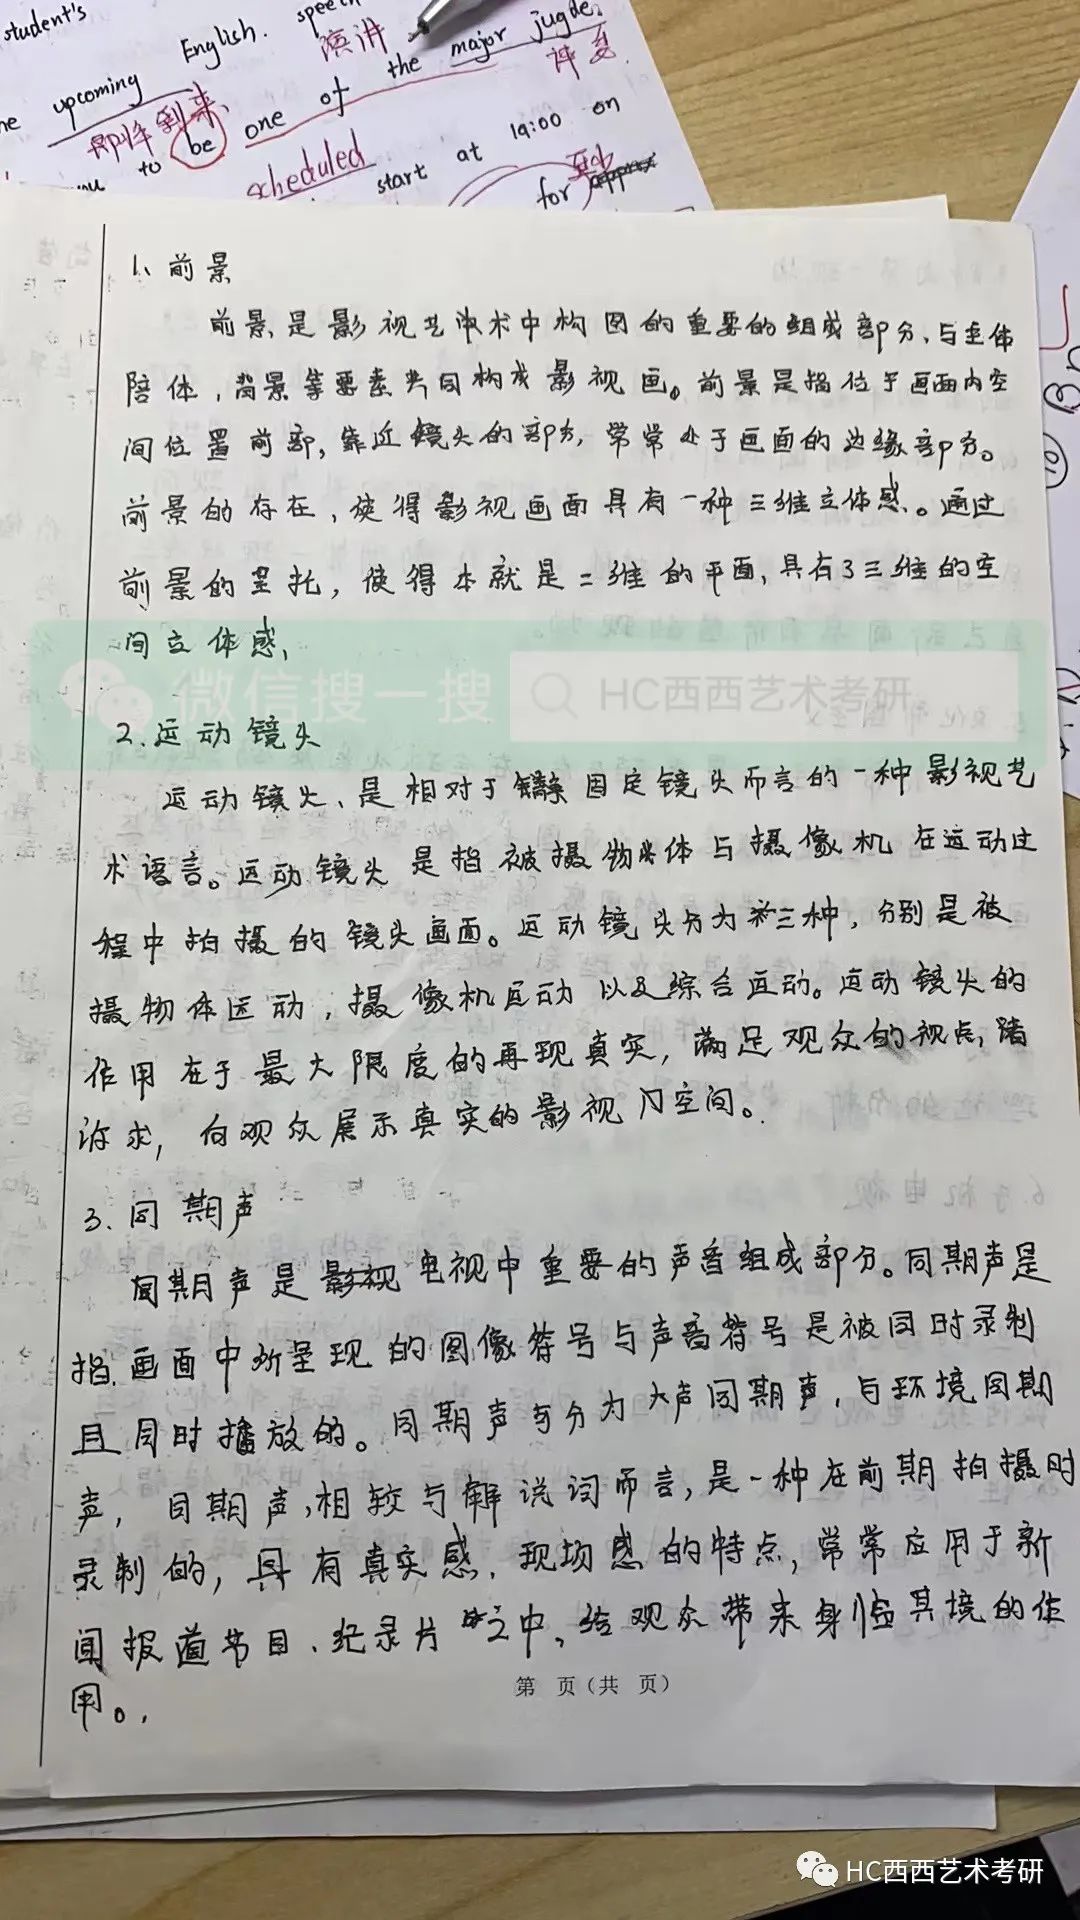 student's
English. speech
演讲
upcoming
即将到来、
to be one of the major jugde.
评委.
scheduled start at 19:00 on
for
1、前景
前景是影视艺术中构图的重要的组成部分、与主体
陪体，背景等要素共同构成影视画。前景是指位于画面内空
间位置前部，靠近镜头的部分，常常处于画面的边缘部分。
前景的存在，使得影视画面具有一种三维立体感。通过
前景的衬托，使得本就是二维的平面，具有了三维的空
间立体感、
微信搜一搜
HC西西艺术考研
2.运动镜头
运动镜头、是相对于固定镜头而言的一种影视艺
术语言。运动镜头是指被摄物体与摄像机在运动过
程中拍摄的镜头画面。运动镜头分为三种，分别是被
摄物体运动，摄像机运动以及综合运动。运动镜头的
作用在于最大限度的再现真实，满足观众的视点
诉求，向观众展示真实的影视空间。
3.同期声
同期声是电视中重要的声音组成部分。同期声是
指画面中所呈现的图像符号与声音符号是被同时录制
且同时播放的。同期声可分为人声同期声，与环境同期
声，同期声，相较与解说词而言，是一种在前期拍摄时
录制的，具有真实感、现场感的特点，常常应用于新
闻报道节目、纪录片之中，给观众带来身临其境的作
用。
第 页（共 页）
HC西西艺术考研